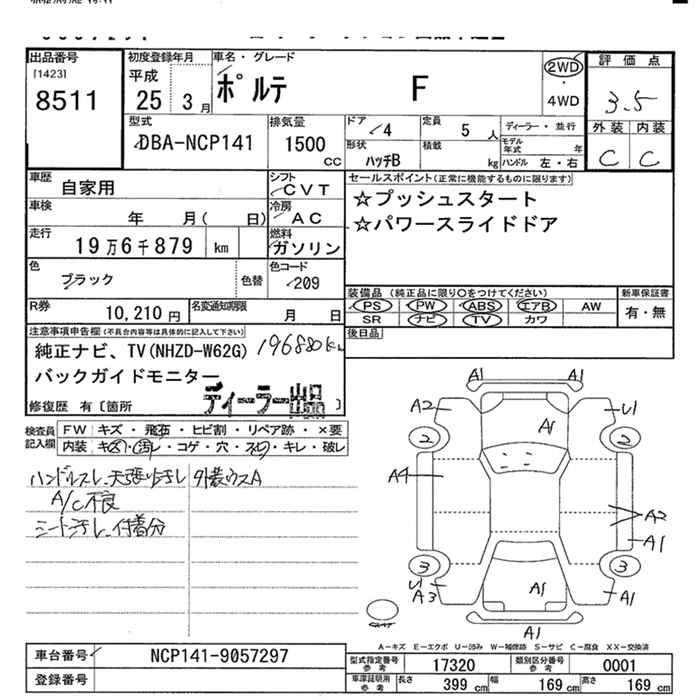 出品番号
[1423]
8511
初度登録年月
平成
25 3月
車名・グレード
ポルテ F
2WD
・
4WD
評価点
3.5
外装 内装
C C
型式
DBA-NCP141
排気量
1500
CC
ドア
4
定員
5 人
ディーラー・並行
形状
ハッチB
積載
kg
モデル年式 年
ハンドル 左・右
車歴
自家用
シフト
CVT
車検
年 月( 日)
冷房
AC
走行
19万6千879 km
燃料
ガソリン
色
ブラック
色替
色コード
209
R券
10,210円
名変通知期限
月 日
セールスポイント(正常に機能するものに限ります)
☆プッシュスタート
☆パワースライドドア
装備品 (純正品に限り○をつけてください)
PS PW ABS エアB AW
SR ナビ TV カワ
新車保証書
有・無
後日品
注意事項申告欄(不具合内容等は具体的に記入して下さい)
純正ナビ、TV(NHZD-W62G) 196880km
バックガイドモニター
ディーラー出品
修復歴 有〔箇所 〕
検査員記入欄
FW キズ・飛石・ヒビ割・リペア跡・×要
内装 キズ・汚れ・コゲ・穴・スリ・キレ・破レ
ハンドルスレ、天張り汚レ 外装ウスA
A/C不良
シート汚レ、付着分
A1 A1
A2 A1 U1
2 2
A4
A2
A1
3 3
U1
A3 A1 A1
A1
A-キズ E-エクボ U-凹み W-補修跡 S-サビ C-腐食 XX-交換済
車台番号
NCP141-9057297
登録番号
型式指定番号
参考
17320
類別区分番号
参考
0001
車庫証明用
参考
長さ 399 cm 幅 169 cm 高さ 169 cm